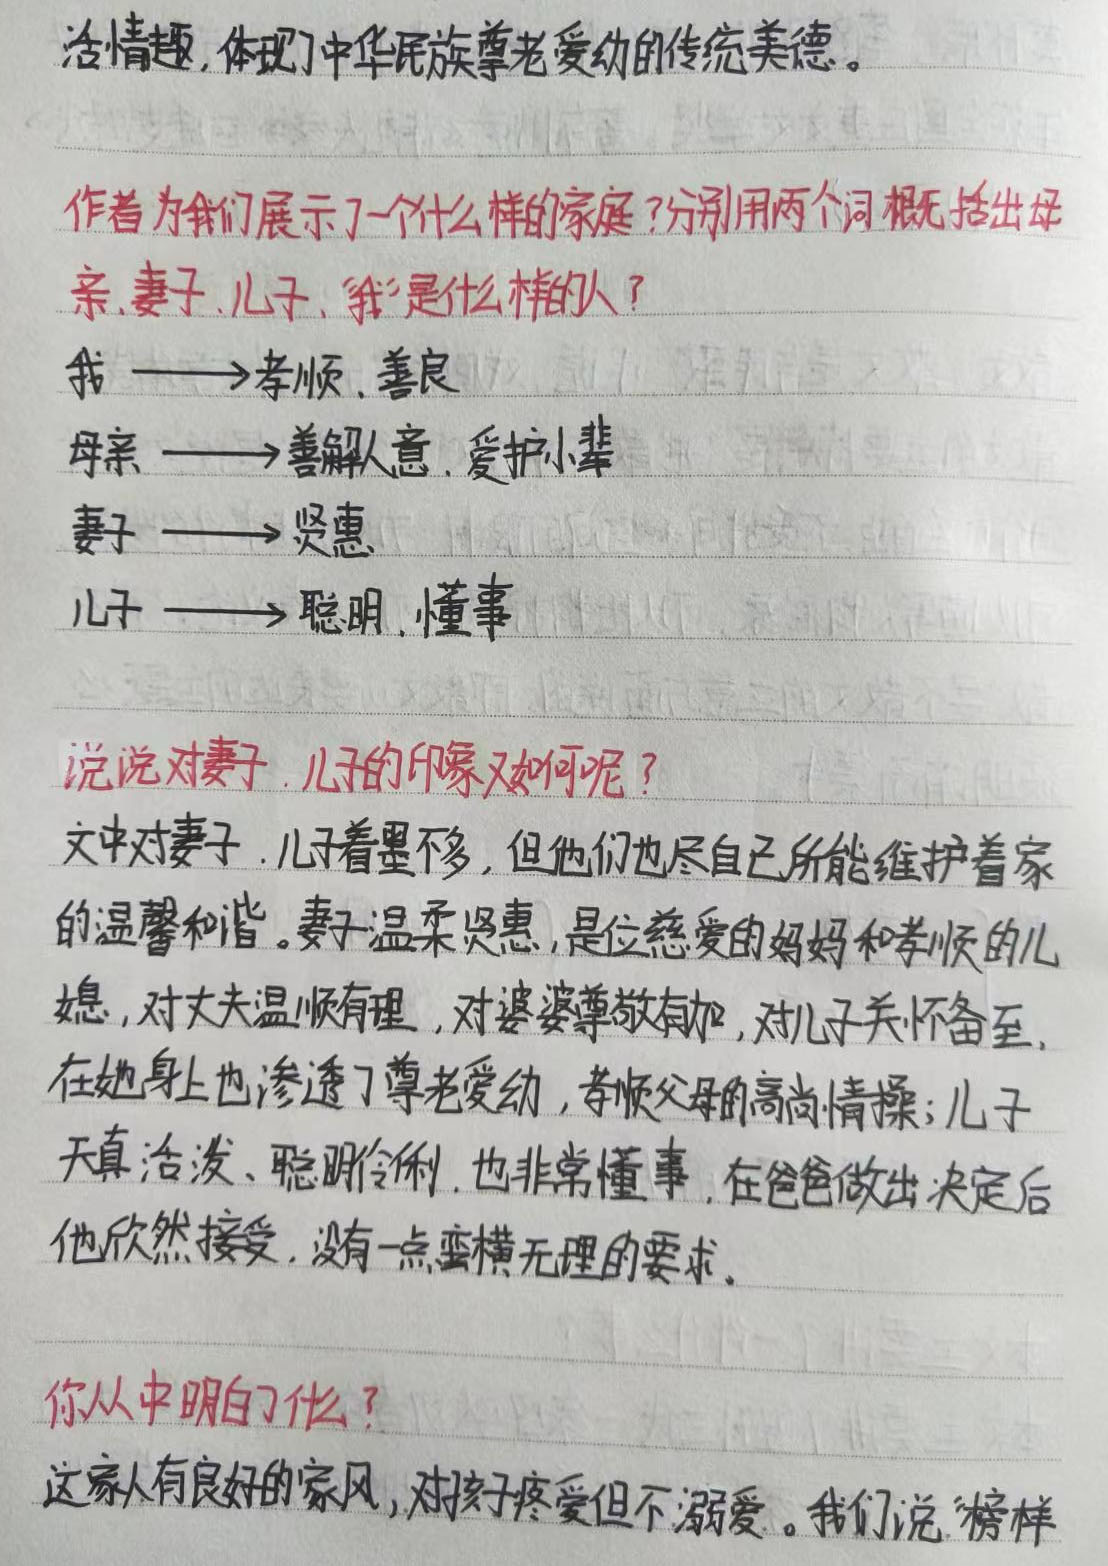 活情趣,体现了中华民族尊老爱幼的传统美德。
作者为我们展示了一个什么样的家庭?分别用两个词概括出母
亲、妻子、儿子、“我”是什么样的人?
我 → 孝顺、善良
母亲 → 善解人意、爱护小辈
妻子 → 贤惠
儿子 → 聪明、懂事
说说对妻子、儿子的印象又如何呢?
文中对妻子、儿子着墨不多,但他们也尽自己所能维护着家
的温馨和谐。妻子温柔贤惠,是位慈爱的妈妈和孝顺的儿
媳,对丈夫温顺有理,对婆婆尊敬有加,对儿子关怀备至,
在她身上也渗透了尊老爱幼,孝顺父母的高尚情操;儿子
天真活泼、聪明伶俐,也非常懂事,在爸爸做出决定后
他欣然接受,没有一点蛮横无理的要求。
你从中明白了什么?
这家人有良好的家风,对孩子疼爱但不溺爱。我们说“榜样